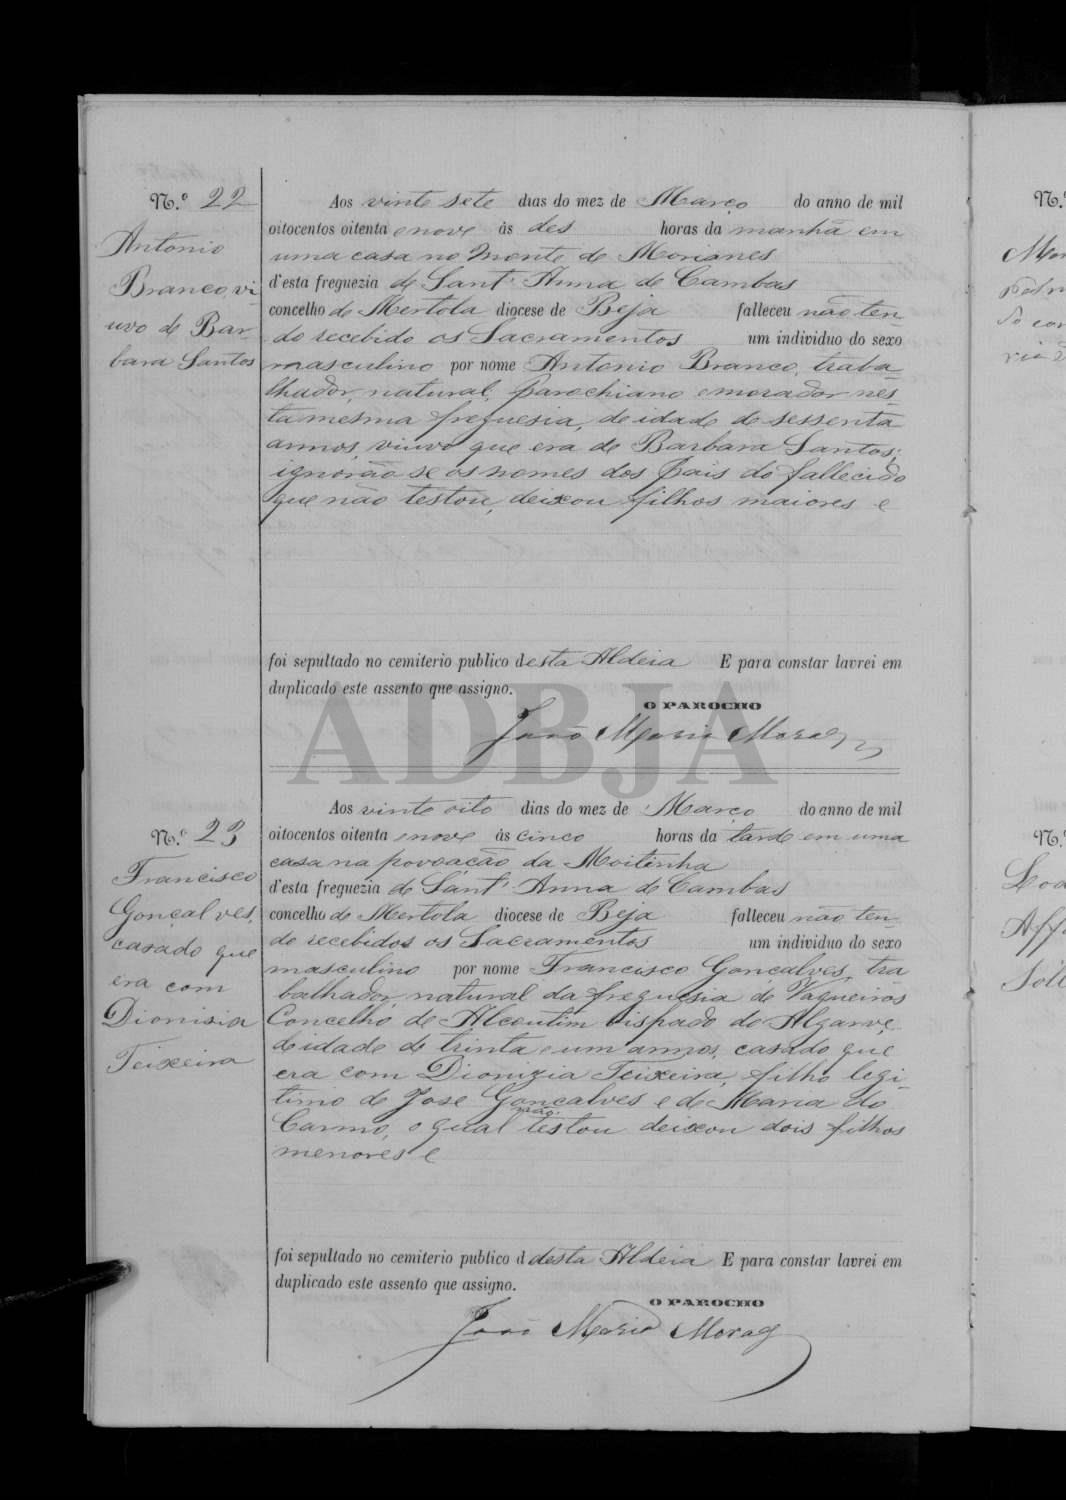 N.º 22
Antonio
Branco, vi
uvo de Bar-
bara Santos
Aos vinte sete dias do mez de Março do anno de mil
oitocentos oitenta e nove ás des horas da manhã em
uma casa no Monte de Morianes
d'esta freguezia de Sant'Anna de Cambas
concelho de Mertola diocese de Beja falleceu não ten-
do recebido os Sacramentos um individuo do sexo
masculino por nome Antonio Branco, traba-
lhador, natural, parochiano e morador nes-
ta mesma freguesia, de idade de sessenta
annos, viuvo que era de Barbara Santos;
ignorão se os nomes dos pais do fallecido
que não testou, deixou filhos maiores e
foi sepultado no cemiterio publico desta Aldeia E para constar lavrei em
duplicado este assento que assigno.
O PAROCHO
João Maria
ADBJA
N.º 23
Francisco
Gonçalves,
casado que
era com
Dionisia
Teixeira
Aos vinte oito dias do mez de Março do anno de mil
oitocentos oitenta e nove ás cinco horas da tarde em uma
casa na povoação da Moitinha
d'esta freguezia de Sant'Anna de Cambas
concelho de Mertola diocese de Beja falleceu não ten-
do recebidos os Sacramentos um individuo do sexo
masculino por nome Francisco Gonçalves, tra
balhador, natural da freguesia de Vaqueiros
Concelho de Alcoutim Bispado do Algarve,
de idade de trinta e um annos, casado que
era com Dionizia Teixeira, filho legi-
timo de José Gonçalves e de Maria do
Carmo, o qual não testou deixou dois filhos
menores e
foi sepultado no cemiterio publico d desta Aldeia E para constar lavrei em
duplicado este assento que assigno.
O PAROCHO
João Maria
N.º
N.º